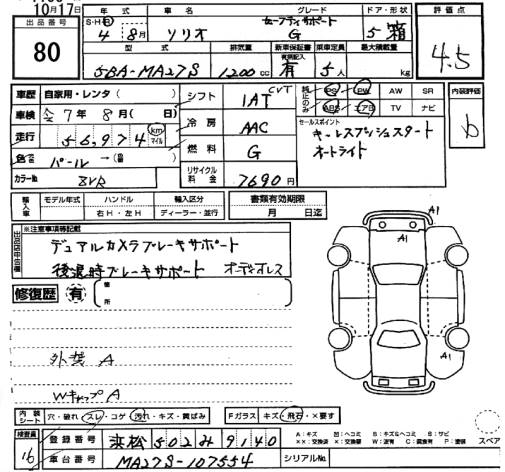 10月17日
出品番号 年式 車名 グレード ドア・形状 評価点
80 S・H・R 4年 8月 ソリオ セーフティサポート G 5 箱 4.5
型式 排気量 新車保証書 乗車定員 最大積載量
5BA-MA27S 1200cc 有 5人 kg
車歴 自家用・レンタ( ) シフト 1AT CVT 純正のみ PS PW AW SR 内装評価
車検 令7年8月( 日) 冷房 AAC ABS エアB TV ナビ b
走行 56,974 km マイル 燃料 G セールスポイント
キーレスプッシュスタート
オートライト
色 パール→( ) リサイクル料金 7690円
カラーNo. ZVR
輸入車 モデル年式 ハンドル 右H・左H 輸入区分 ディーラー・並行 書類有効期限 月 日迄
※注意事項等記載
デュアルカメラブレーキサポート
後退時ブレーキサポート オーディオレス
修復歴 有 箇所
A1
A1
A1
外装 A
Wキャップ A
内装シート 穴・破れ・スレ・コゲ・汚れ・キズ・黄ばみ Fガラス キズ・飛石・×要す
検査員 16 登録番号 浜松502み9140
車台番号 MA27S-107554 シリアルNo.
スペア